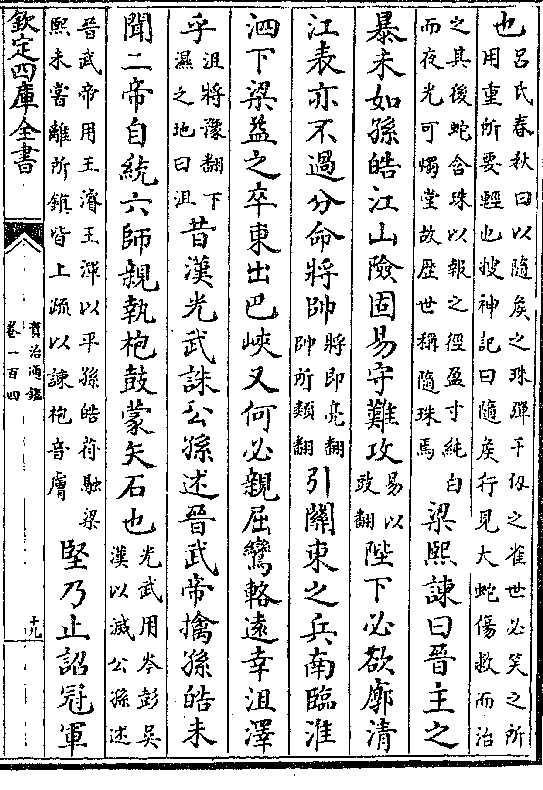 也吕氏春秋曰以隨矦之珠彈千仭之雀世必笑之所
用重所要輕也搜神記曰隨矦行見大蛇傷救而治
之其後蛇含珠以報之徑盈寸純白
而夜光可燭堂故歴世稱隨珠焉梁熙諫曰晉主之
暴未如孫皓江山險固易守難攻易以
豉翻陛下必欲廓清
江表亦不過分命將帥將即亮翻
帥所類翻引關東之兵南臨淮
泗下梁益之卒東出巴峽又何必親屈鸞輅遠幸沮澤
乎沮將豫翻下
濕之地曰沮昔漢光武誅公孫述晉武帝擒孫皓未
聞二帝自統六師親執枹鼓蒙矢石也光武用岑彭吳
漢以滅公孫述
晉武帝用王濬王渾以平孫皓苻融梁
熙未嘗離所鎮皆上疏以諫枹音膚堅乃止詔冠軍
欽定四庫全書
資治通鑑
卷一百四
十九